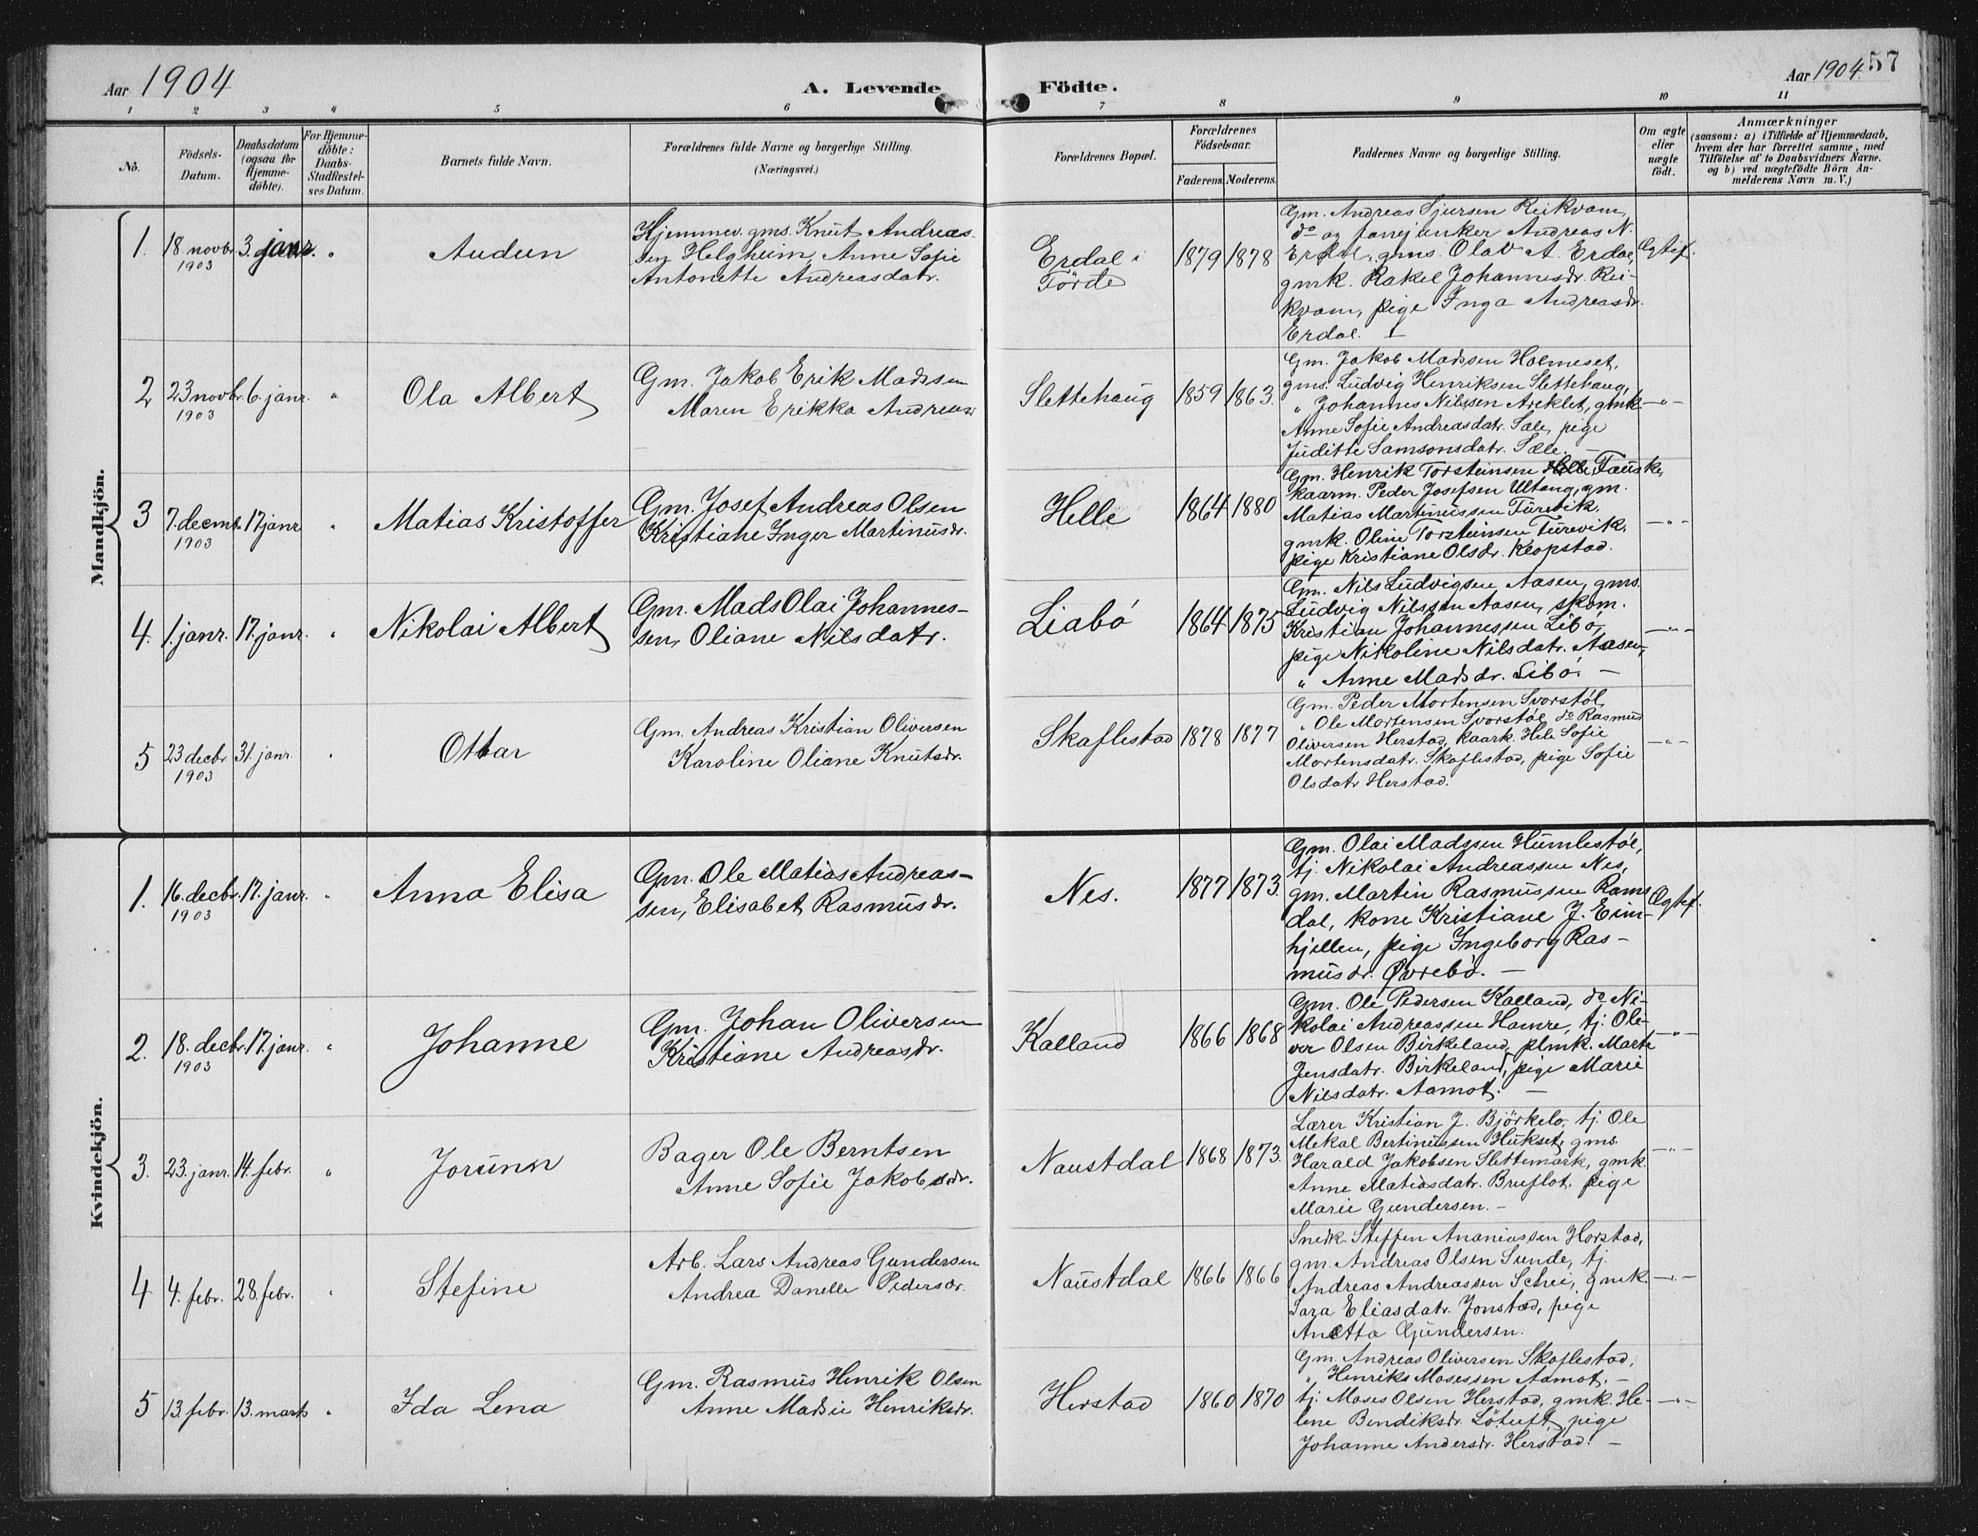 Aar 1904
A. Levende
Födte.
Aar 1904.
57
1 2 3 4 5 6 7 8 9 10 11
No.
Födsels-
Datum.
Daabsdatum
(ogsaa for
Hjemme-
döbte).
For Hjemme-
döbte:
Daabs-
Stadfæstel-
ses Datum.
Barnets fulde Navn.
Forældrenes fulde Navne og borgerlige Stilling.
(Næringsvei.)
Forældrenes Bopæl.
Forældrenes
Födselsaar.
Faderens. Moderens.
Faddernes Navne og borgerlige Stilling.
Om ægte
eller
uægte
födt.
Anmærkninger
(saasom: a) i Tilfælde af Hjemmedaab,
hvem der har forrettet samme, med
Tilföielse af to Daabsvidners Navne.
og b) ved uægtefödte Börn An-
melderens Navn m. V.)
Mandkjön.
1. 18 novbr. 3. janr. "
1903
Audun
Hjemmev. gms. Knut Andreas-
sen Helgheim, Anne Sofie
Antonette Andreasdatr.
Erdal i
Förde
1879 1878
Gm. Andreas Sjursen Reikvam,
do og Andreas N.
Erdal, gms. Olav A. Erdal,
gmk. Rakel Johannesdr. Rei-
kvam, pige Inga Andreasdr.
Erdal. -
Egtef.
2 23 novbr. 6. janr. "
1903
Ola Albert
Gm. Jakob Erik Madssen
Maren Erikka Andreasdr
Slettehaug
1859 1863.
Gm. Jakob Madssen Holmeset,
gms. Ludvig Henriksen Slettehaug,
" Johannes Nilssen Areklet, gmk
Anne Sofie Andreasdatr. Sæle, pige
Juditte Samsonsdatr. Sæle. -
-"-
3 7. decmb. 17 janr "
1903
Matias Kristoffer
Gm. Josef Andreas Olsen
Kristiane Inger Martinusdr.
Helle
1864 1880
Gm. Henrik Torsteinsen Helle, Fauske,
kaarm. Peder Josefsen Ultang, gm.
Matias Martinussen Turevik,
gmk. Oline Torsteinsen Turevik,
pige Kristiane Olsdr. Klopstad.
-"-
4. 1. janr. 17. janr. "
Nikolai Albert
Gm. Mads Olai Johannes-
sen, Oliane Nilsdatr.
Liabö
1864 1875
Gm. Nils Ludvigsen Aasen, gms.
Ludvig Nilssen Aasen, skom.
Kristian Johannessen Libö,
pige Nikoline Nilsdatr. Aasen,
" Anne Madsdr. Libö. -
-"-
5 23 decbr. 31. janr. "
1903
Ottar
Gm. Andreas Kristian Oliversen
Karoline Oliane Knutsdr.
Skaflestad
1878 1877
Gm. Peder Mortensen Svorstöl,
" Ole Mortensen Svorstöl do Rasmus
Oliversen Herstad, kaark. Sofie
Mortensdatr. Skaflestad, pige Sofie
Olsdatr Herstad.
-"-
Kvindekjön.
1. 16 decbr. 17. janr. "
1903
Anna Elisa
Gm. Ole Matias Andreas-
sen, Elisabet Rasmusdr.
Nes.
1877 1873.
Gm. Olai Madssen Humlestöl,
tj. Nikolai Andreassen Nes,
gm. Martin Rasmussen Rams
dal, kone Kristiane J. Eim-
hjellen, pige Ingeborg Ras-
musdr. Øvrebö. -
Egtef.
2. 18. decbr. 17. janr. "
1903
Johanne
Gm. Johan Oliversen
Kristiane Andreasdr.
Kalland
1866 1868
Gm. Ole Pedersen Kalland, do Ni-
kolai Andreassen Hamre, tj. Oli-
ver Olsen Birkeland, plmk. Marte
Jensdatr. Birkeland, pige Marie
Nilsdatr. Aamot. -
-"-
3. 23. janr. 14. febr. "
Jorunn
Bager Ole Berntsen
Anne Sofie Jakobsdr.
Naustdal
1868 1873.
Lærer Kristian J. Björkelo, tj. Ole
Mekal Bertinussen Hukset, gms.
Harald Jakobsen Slettemark, gmk.
Anne Matiasdatr. Bruflot, pige
Marie Gundersen. -
-"-
4 4. febr. 28. febr. "
Stefine
Arb. Lars Andreas Gundersen
Andrea Danelle Pedersdr.
Naustdal
1866 1866
Snedk. Steffen Ananiassen Horstad,
gm. Andreas Olsen Sunde, tj.
Andreas Andreassen Schei, gmk.
Sara Eliasdatr. Jonstad, pige
Anetta Gundersen.
-"-
5 13. febr. 13. marts "
Ida Lena
Gm. Rasmus Henrik Olsen
Anne Madsie Henriksdr.
Herstad
1860 1870
Gm. Andreas Oliversen Skaflestad,
" Henriks Mosessen Aamot. -
tj. Moses Olsen Herstad, gmk. He-
lene Bendiksdr. Lötuft, pige
Johanne Andersdr. Herstad. -
-"-